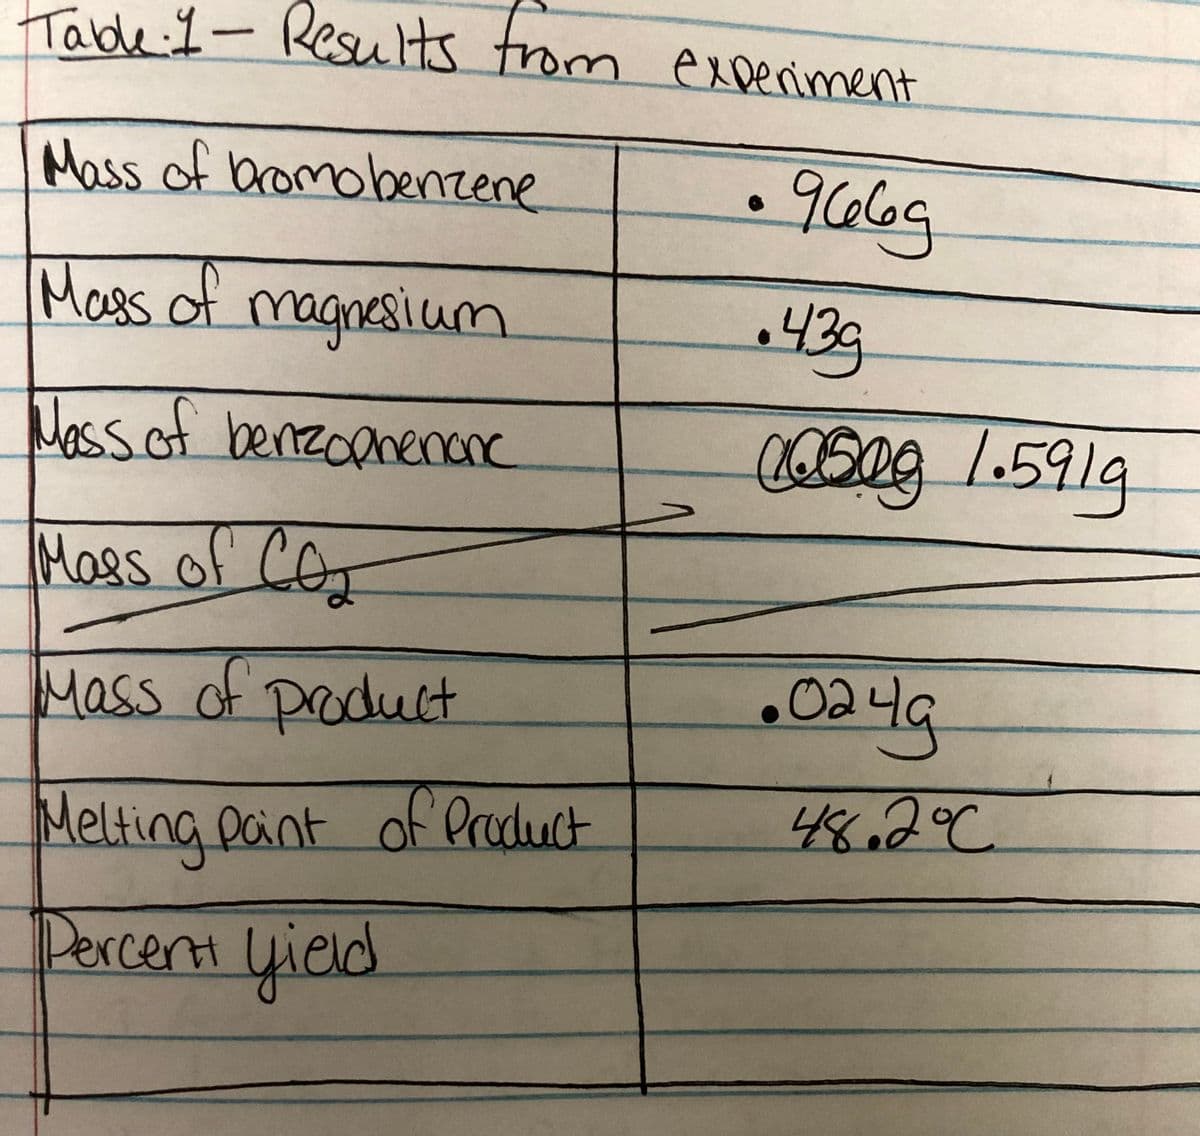 Table.1 - Results from experiment
Mass of bromobenzene .966g
Mass of magnesium .43g
Mass of benzophenone 1.591g
Mass of CO2
Mass of product .024g
Melting point of Product 48.2°C
Percent yield